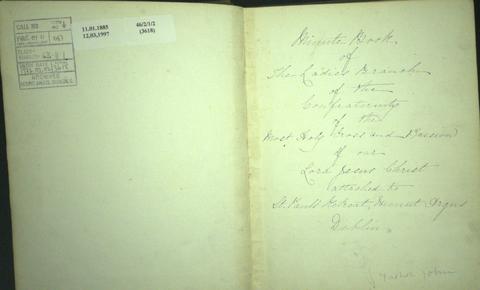 CALL NO
11.01.1885
12.03.1997
46/2/1/2
(3618)
Minute Book
of
The Ladies Branch
of the
Confraternity
of the
Most Holy Cross and Passion
of our
Lord Jesus Christ
attached to
St. Pauls Retreat, Mount Argus
Dublin.
Father John